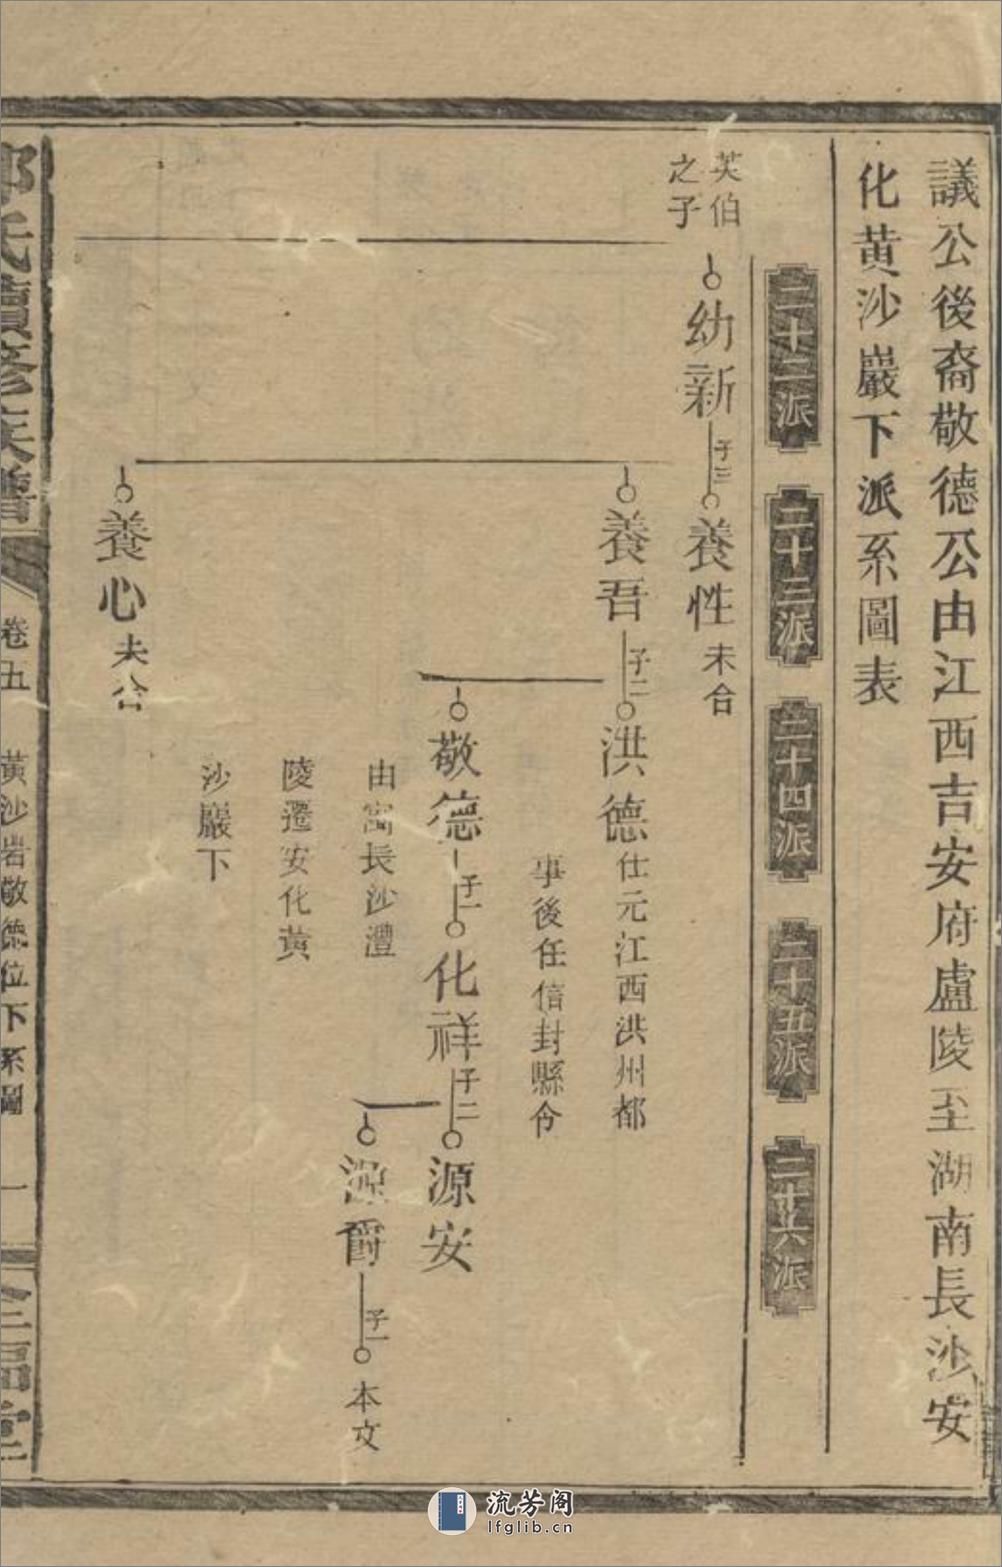 議公後裔敬德公由江西吉安府廬陵至湖南長沙安
化黄沙巖下派系圖表
二十二派
二十三派
二十四派
二十五派
二十六派
英伯
之子
幼新
子三
養性
未合
養吾
子二
洪德
仕元江西洪州都
事後任信封縣令
敬德
由寓長沙澧
陵遷安化黄
沙巖下
子一
化祥
子二
源安
源爵
子一
本文
養心
夫合
氏續修族譜
卷五
黄沙岩敬德位下系圖
一
堂
流芳阁
lfglib.cn